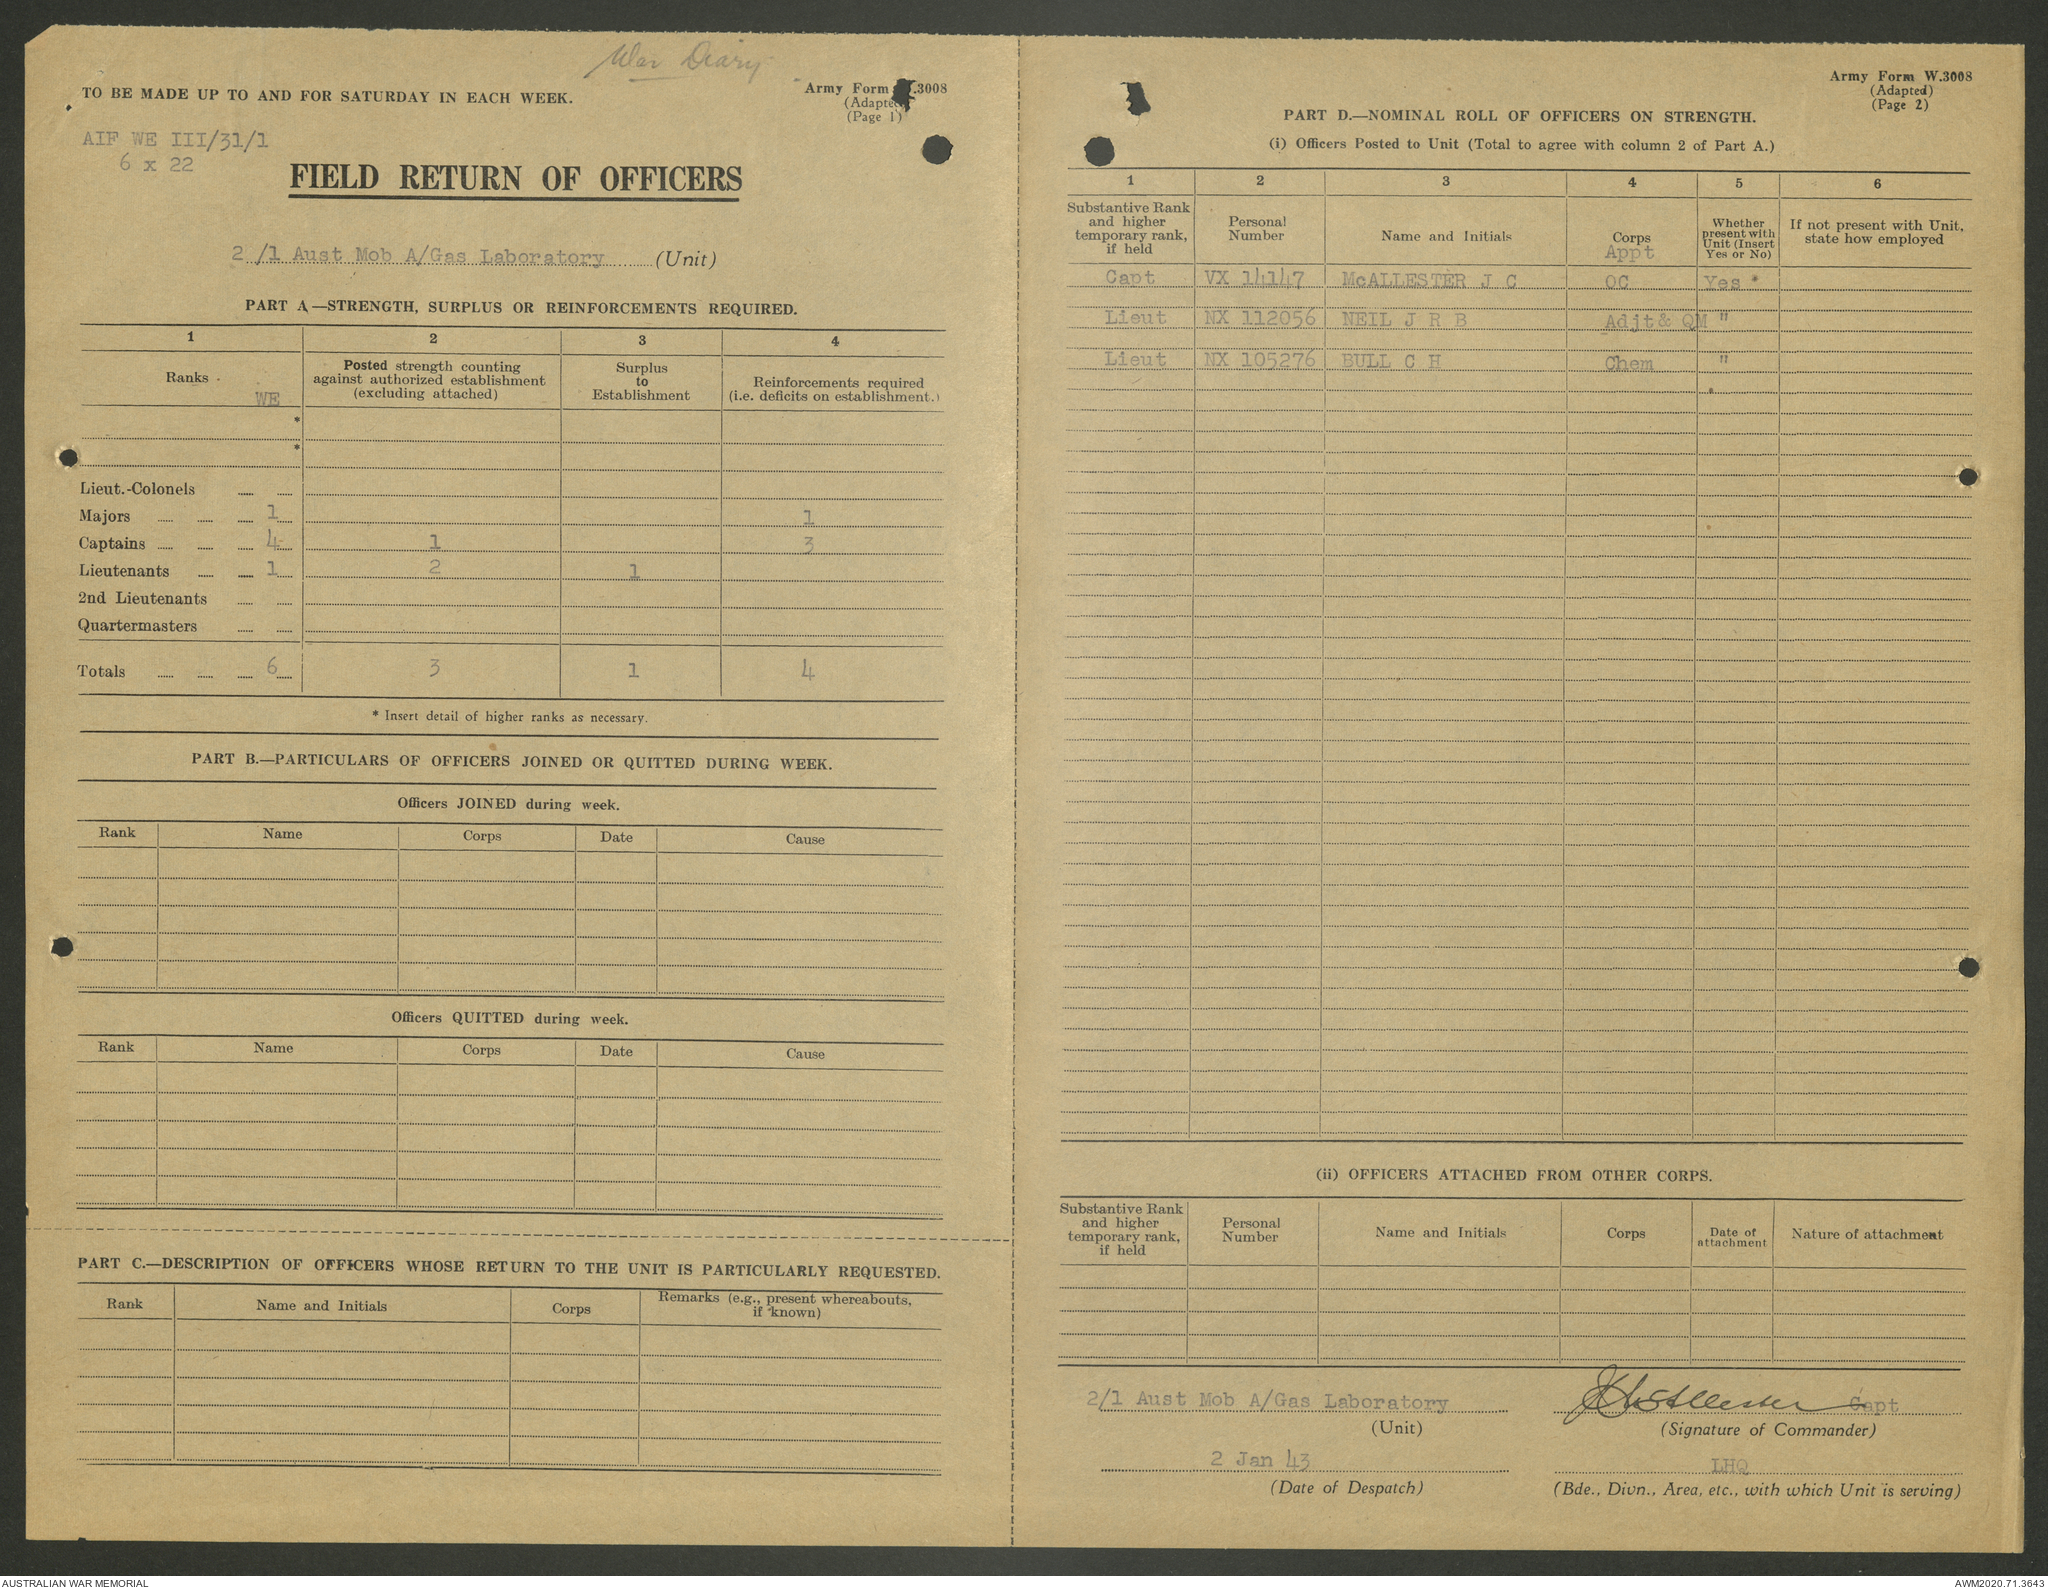 War Diary
TO BE MADE UP TO AND FOR SATURDAY IN EACH WEEK.
Army Form W.3008
(Adapted)
(Page 1)
AIF WE III/31/1
6 x 22
FIELD RETURN OF OFFICERS
2 /1 Aust Mob A/Gas Laboratory (Unit)
PART A.—STRENGTH, SURPLUS OR REINFORCEMENTS REQUIRED.
1 2 3 4
Ranks WE Posted strength counting against authorized establishment (excluding attached) Surplus to Establishment Reinforcements required (i.e. deficits on establishment.)
*
*
Lieut.-Colonels
Majors 1 1
Captains 4 1 3
Lieutenants 1 2 1
2nd Lieutenants
Quartermasters
Totals 6 3 1 4
* Insert detail of higher ranks as necessary.
PART B.—PARTICULARS OF OFFICERS JOINED OR QUITTED DURING WEEK.
Officers JOINED during week.
Rank Name Corps Date Cause
Officers QUITTED during week.
Rank Name Corps Date Cause
PART C.—DESCRIPTION OF OFFICERS WHOSE RETURN TO THE UNIT IS PARTICULARLY REQUESTED.
Rank Name and Initials Corps Remarks (e.g., present whereabouts, if known)
Army Form W.3008
(Adapted)
(Page 2)
PART D.—NOMINAL ROLL OF OFFICERS ON STRENGTH.
(i) Officers Posted to Unit (Total to agree with column 2 of Part A.)
1 2 3 4 5 6
Substantive Rank and higher temporary rank, if held Personal Number Name and Initials Corps Appt Whether present with Unit (Insert Yes or No) If not present with Unit, state how employed
Capt VX 14147 McALLESTER J C OC Yes
Lieut NX 112056 NEIL J R B Adjt& QM "
Lieut NX 105276 BULL C H Chem "
(ii) OFFICERS ATTACHED FROM OTHER CORPS.
Substantive Rank and higher temporary rank, if held Personal Number Name and Initials Corps Date of attachment Nature of attachment
2/1 Aust Mob A/Gas Laboratory
(Unit)
JC McAllester Capt
(Signature of Commander)
2 Jan 43
(Date of Despatch)
LHQ
(Bde., Divn., Area, etc., with which Unit is serving)
AUSTRALIAN WAR MEMORIAL
AWM2020.71.3643